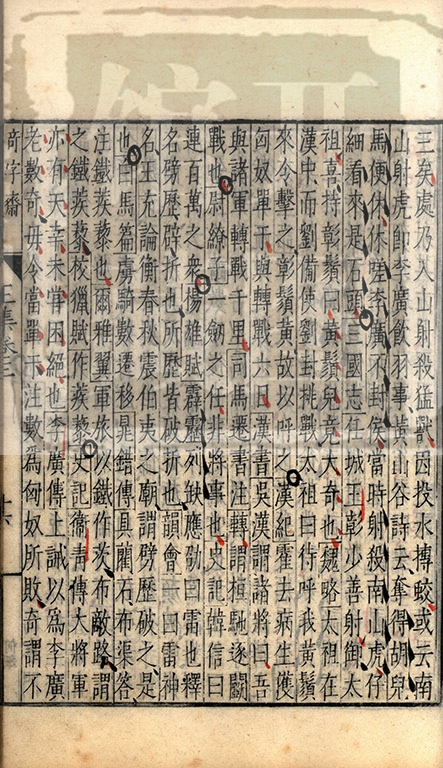 三矣處乃入山射殺猛獸因投水搏蛟或云南
山射虎即李廣飲羽事黃山谷詩云奪得胡兒
馬便休休嗟李廣不封侯當時射殺南山虎仔
細看來是石頭三國志任城王彰少善射御太
祖喜持彰鬚曰黃鬚兒竟大奇也魏略太祖在
漢中而劉備使劉封挑戰太祖曰待呼我黃鬚
來令擊之彰鬚黃故以呼之漢紀霍去病生獲
匈奴單于與轉戰六日漢書吳漢謂諸將曰吾
與諸軍轉戰千里司馬遷書注轉謂桓馳逐鬬
戰也尉繚子一劒之任非將事也史記韓信曰
連百萬之衆楊雄賦霹靂列缺應劭曰雷也釋
名劈歷辟折也所歷皆破折也韻會曰雷神
名王充論衡春秋震伯夷之廟謂劈歷破之是
也白馬篇虜騎數遷移鼂錯傳具藺石布渠答
注鐵蒺藜也爾雅翼軍旅以鐵作茨布敵路謂
之鐵蒺藜校獵賦作蒺藜史記衞青傳大將軍
亦有天幸未嘗困絕也李廣傳上誡以爲李廣
老數奇毋令當單于注數爲匈奴所敗奇謂不
奇字齋